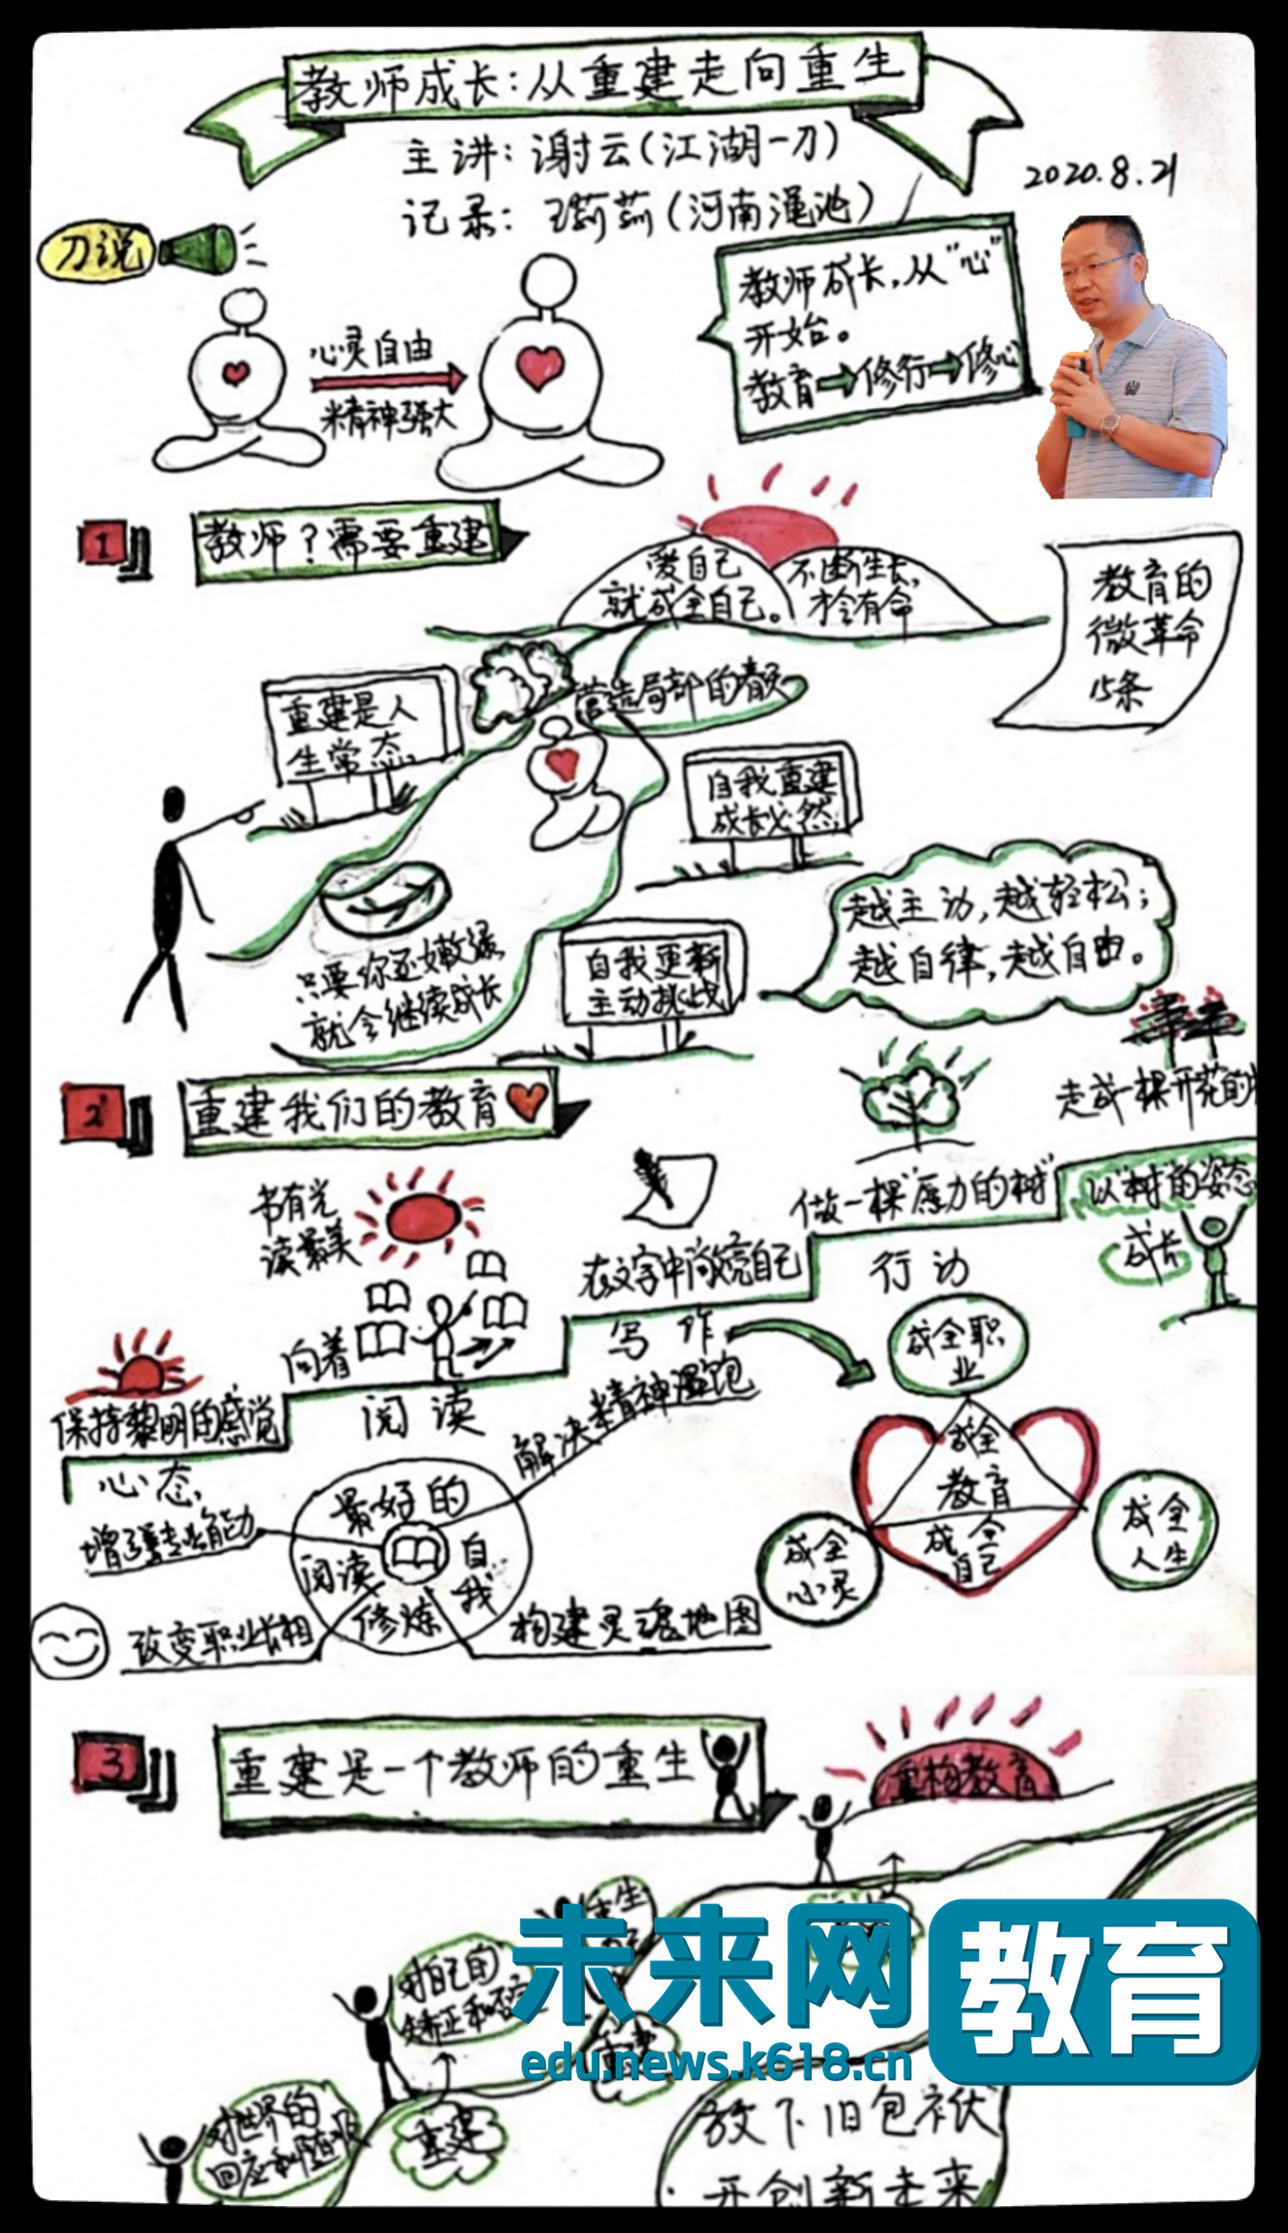 教师成长:从重建走向重生
主讲:谢云(江湖一刀)
记录:(河南渑池)
2020.8.21
刀说
心灵自由
精神强大
教师成长,从“心”
开始。
教育→修行→修心
1
教师?需要重建
爱自己
就成全自己。
不断生长,
才会有命
教育的
微革命
15条
重建是人
生常态,
营造局部的
自我重建
成长必然,
越主动,越轻松;
越自律,越自由。
只要你还嫩绿,
就会继续成长
自我更新
主动挑战
2
重建我们的教育
走成一棵开花的
做一棵“愿力的树”
以“树”的姿态
成长
书有光
读最美
在文字中敞亮自己
行动
向着
写作
保持黎明的感觉
阅读
心态,
解决精神温饱
成全职
业
成全
教育
成全
自己
成全
心灵
成全
人生
增强专业能力
最好的
阅读
自我
修炼
改变职业长相
构建灵魂地图
3
重建是一个教师的重生
重构教育
对自己的
矫正和
重生
重建
对世界的
回应和
重建
未来网
教育
edu.news.k618.cn
放下旧包袱
开创新未来